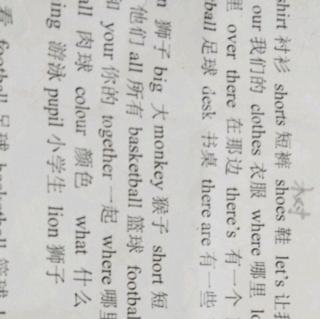 shirt 衬衫 shorts 短裤 shoes 鞋 let's 让我
our 我们的 clothes 衣服 where 哪里
里 over there 在那边 there's 有一个
ball 足球 desk 书桌 there are 有一些
狮子 big 大 monkey 猴子 short 短
他们 all 所有 basketball 篮球 footbal
和 your 你的 together 一起 where 哪里
all 肉球 colour 颜色 what 什么
ing 游泳 pupil 小学生 lion 狮子
看 football 足球 basketball 篮球